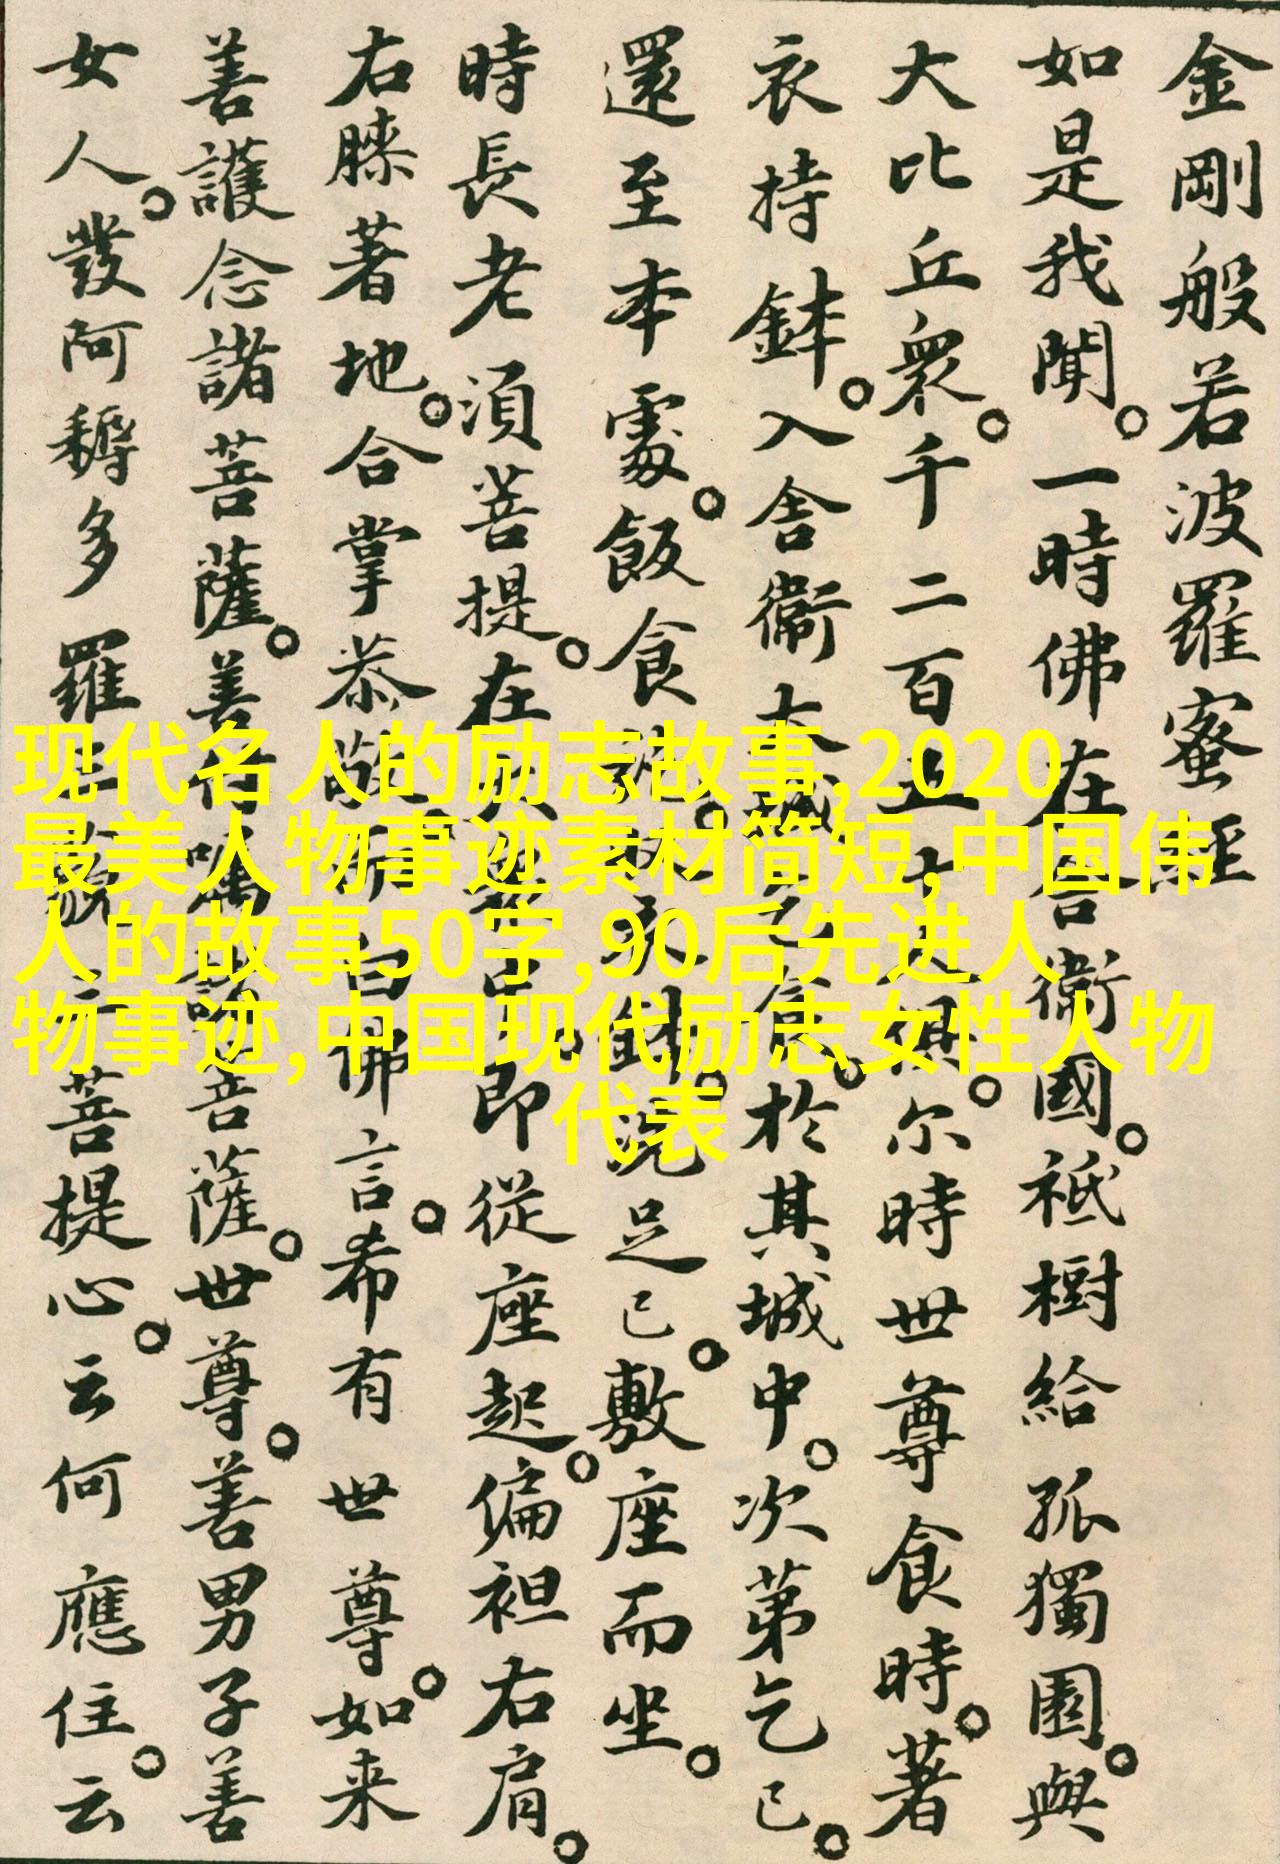 金剛般若波羅蜜經
如是我聞。一時佛在舍衞國。祇樹給孤獨園。與
大比丘衆。千二百五十人俱。尔時世尊食時。著
衣持鉢。入舍衞大城乞食。於其城中。次第乞已。
還至本處。飯食訖。收衣鉢。洗足已。敷座而坐。
時長老須菩提。在大衆中。即從座起。偏袒右肩。
右膝著地。合掌恭敬。而白佛言。希有世尊。如来
善護念諸菩薩。善付囑諸菩薩。世尊。善男子善
女人。發阿耨多羅三藐三菩提心。云何應住。云
现代名人的励志故事,2020
最美人物事迹素材简短,中国伟
人的故事50字,90后先进人
物事迹,中国现代励志女性人物
代表